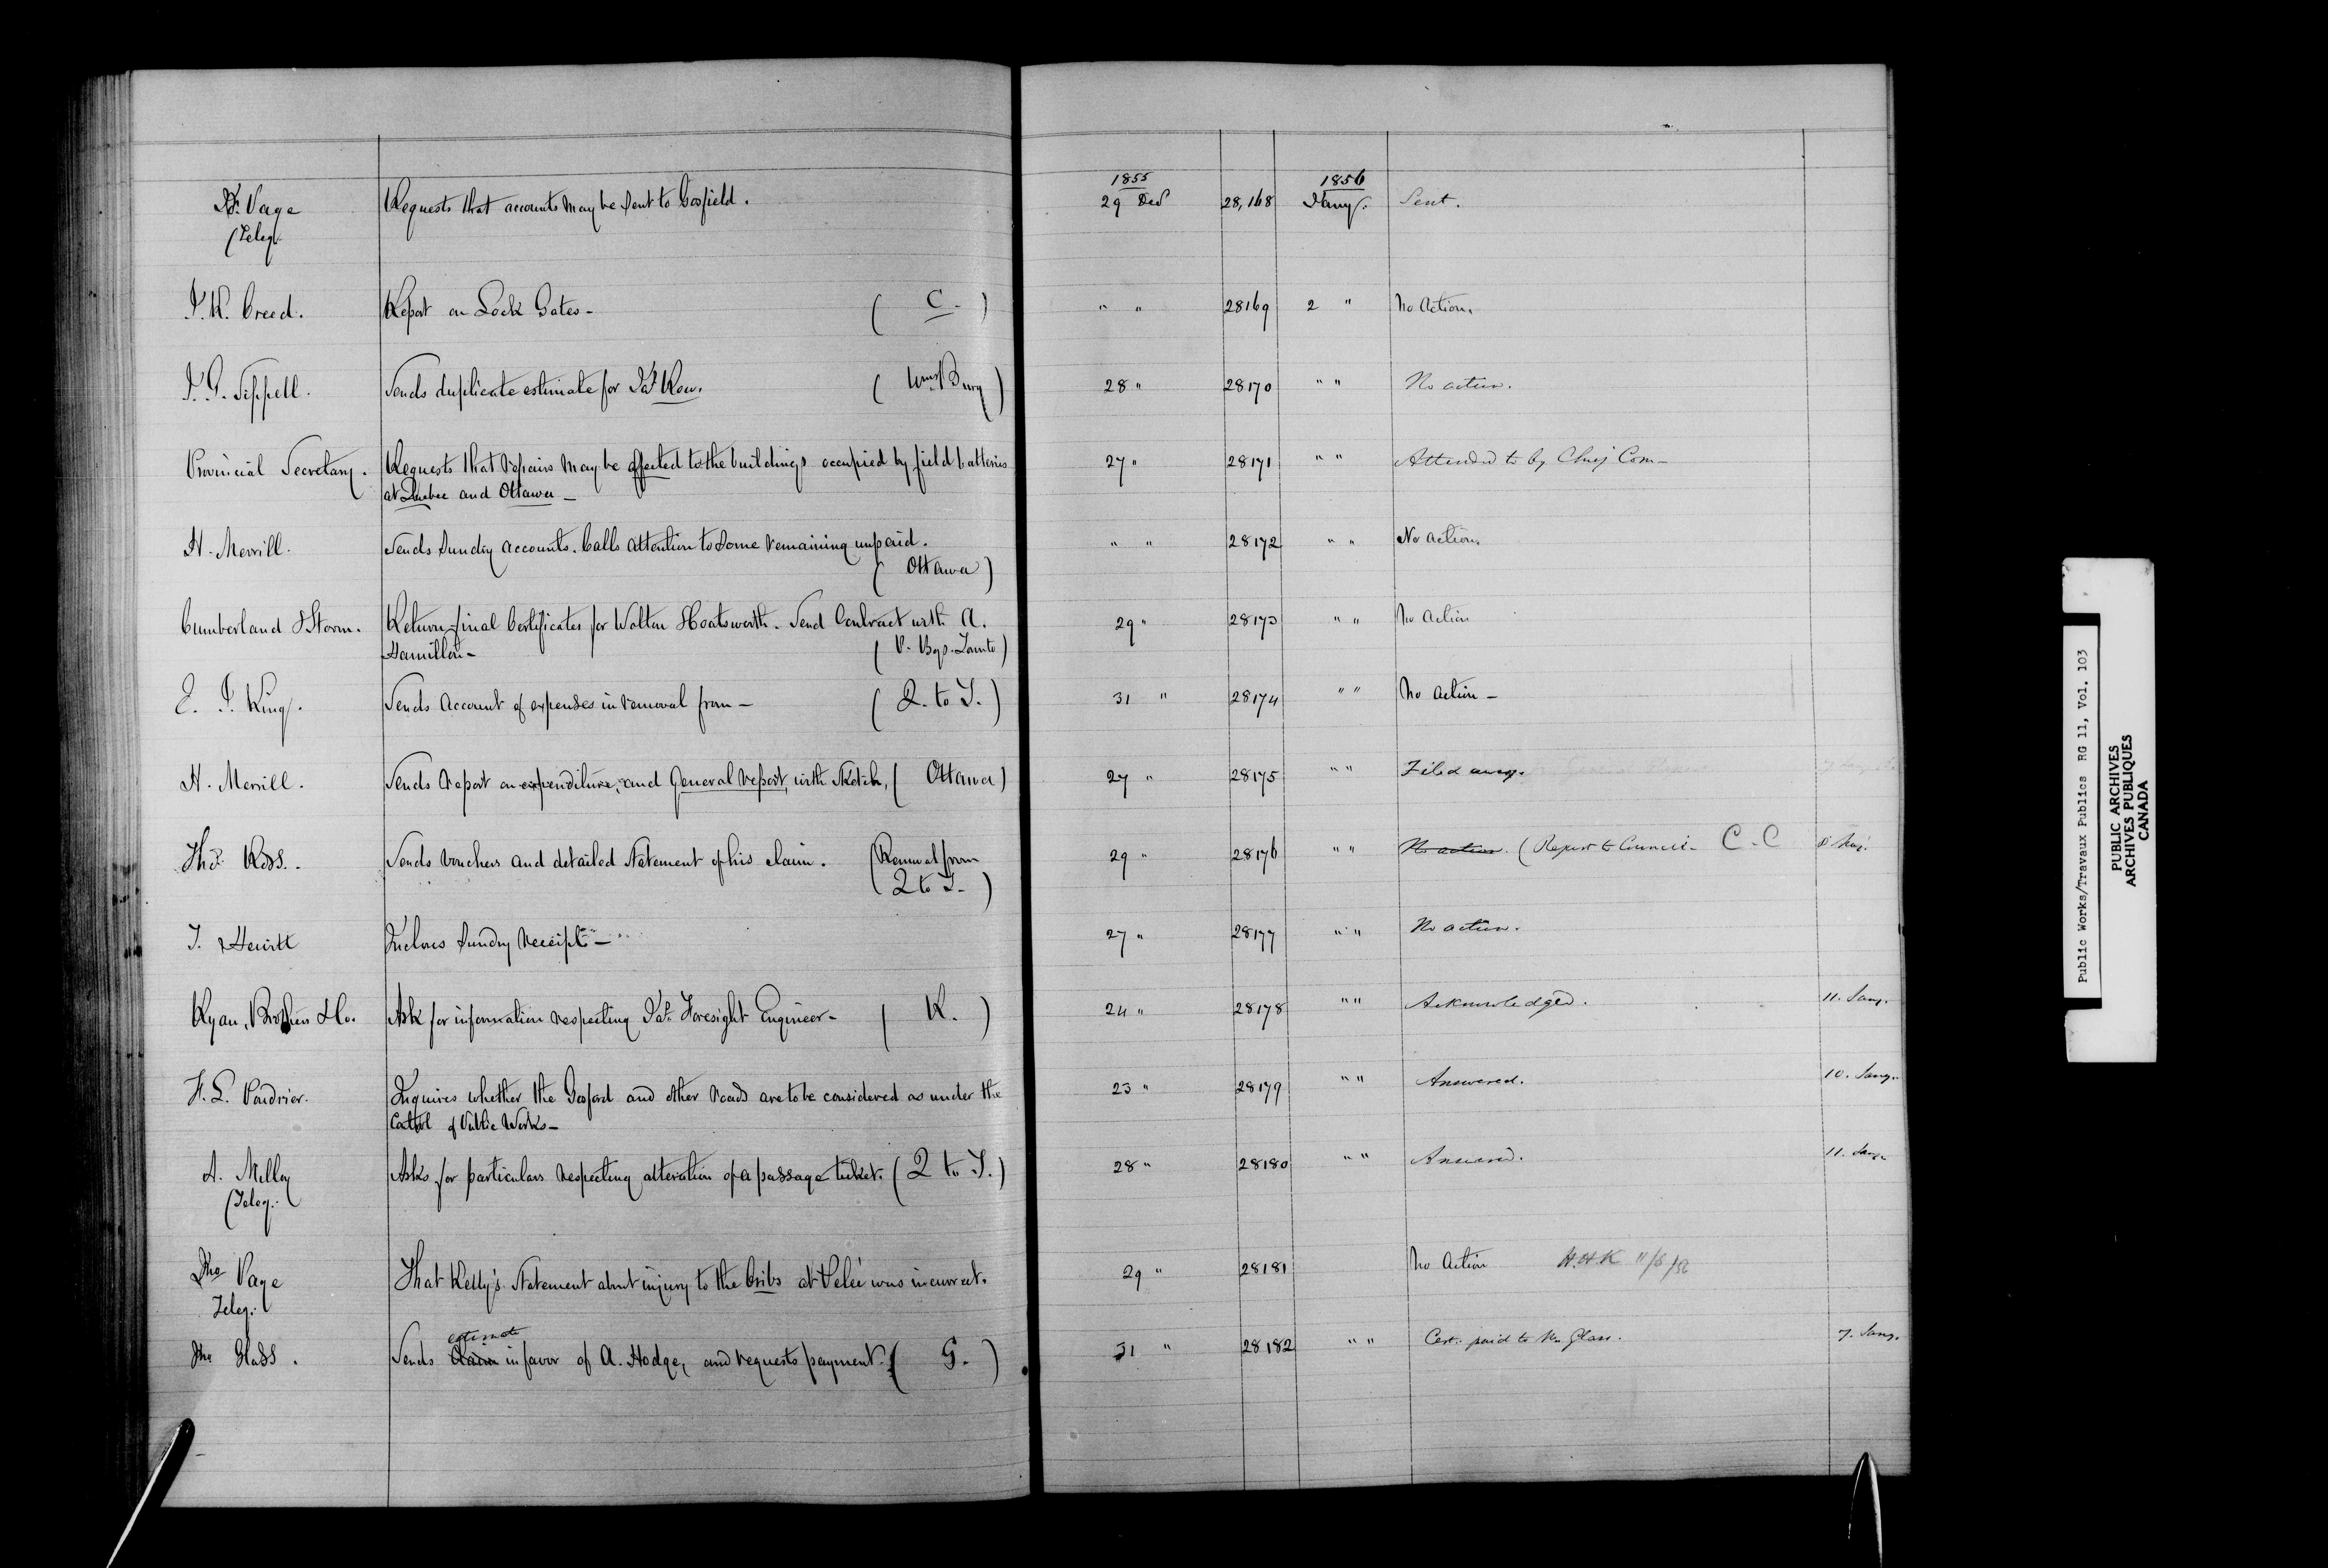 1855 1856
Page Requests that accounts may be sent to Gosfield. 29 Decr 28,168 Jany. Sent.
(Teleg.
J. W. Creed. Report on Lock Gates - ( C - ) " " 28169 2 " No Action.
J. G. Sippell. Sends duplicate estimate for Jas Row. ( Wmsburg ) 28 " 28170 " " No action.
Provincial Secretary. Requests that repairs may be effected to the buildings occupied by field batteries 27 " 28171 " " Attended to by Chief Com -
at Quebec and Ottawa -
H. Merrill. Sends Sundry accounts. Calls attention to some remaining unpaid. " " 28172 " " No action.
( Ottawa )
Cumberland & Storm. Return final Certificates for Walton Hoatsworth. Send Contract with A. 29 " 28173 " " No action
Hamilton - ( P. Bgs. Toronto )
E. J. King. Sends Account of expenses in removal from - ( Q. to T. ) 31 " 28174 " " No action -
H. Merrill. Sends report on expenditure, and General report, with sketch, ( Ottawa ) 27 " 28175 " " Filed away.
Thos Ross. Sends vouchers and detailed statement of his claim. (Removal from 29 " 28176 " " No action. (Report to Council - C-C 8
( Q to T. )
J. Hewitt Incloses Sundry receipts - 27 " 28177 " " No action.
Ryan, Brothers & Co. Ask for information respecting Pat. Foresight Engineer - ( R. ) 24 " 28178 " " Acknowledged. 11. Jany.
F. L. Poudrier. Inquires whether the Gosford and other roads are to be considered as under the 23 " 28179 " " Answered. 10. Jany.
Control of Public Works -
A. Milloy Asks for particulars respecting alteration of a passage ticket. ( Q to T. ) 28 " 28180 " " Answered. 11. Jany.
(Teleg.
Jno Page That Kelly's Statement about injury to the Cribs at Pelée was incorrect. 29 " 28181 No Action H.H.K 11/8/56
Teleg.
estimate
Jno Glass. Sends Claim in favor of A. Hodge, and requests payment. ( G. ) 31 " 28182 " " Cert. paid to Mr Glass. 7. Jany.
Public Works/Travaux Publics RG 11, Vol. 103
PUBLIC ARCHIVES
ARCHIVES PUBLIQUES
CANADA